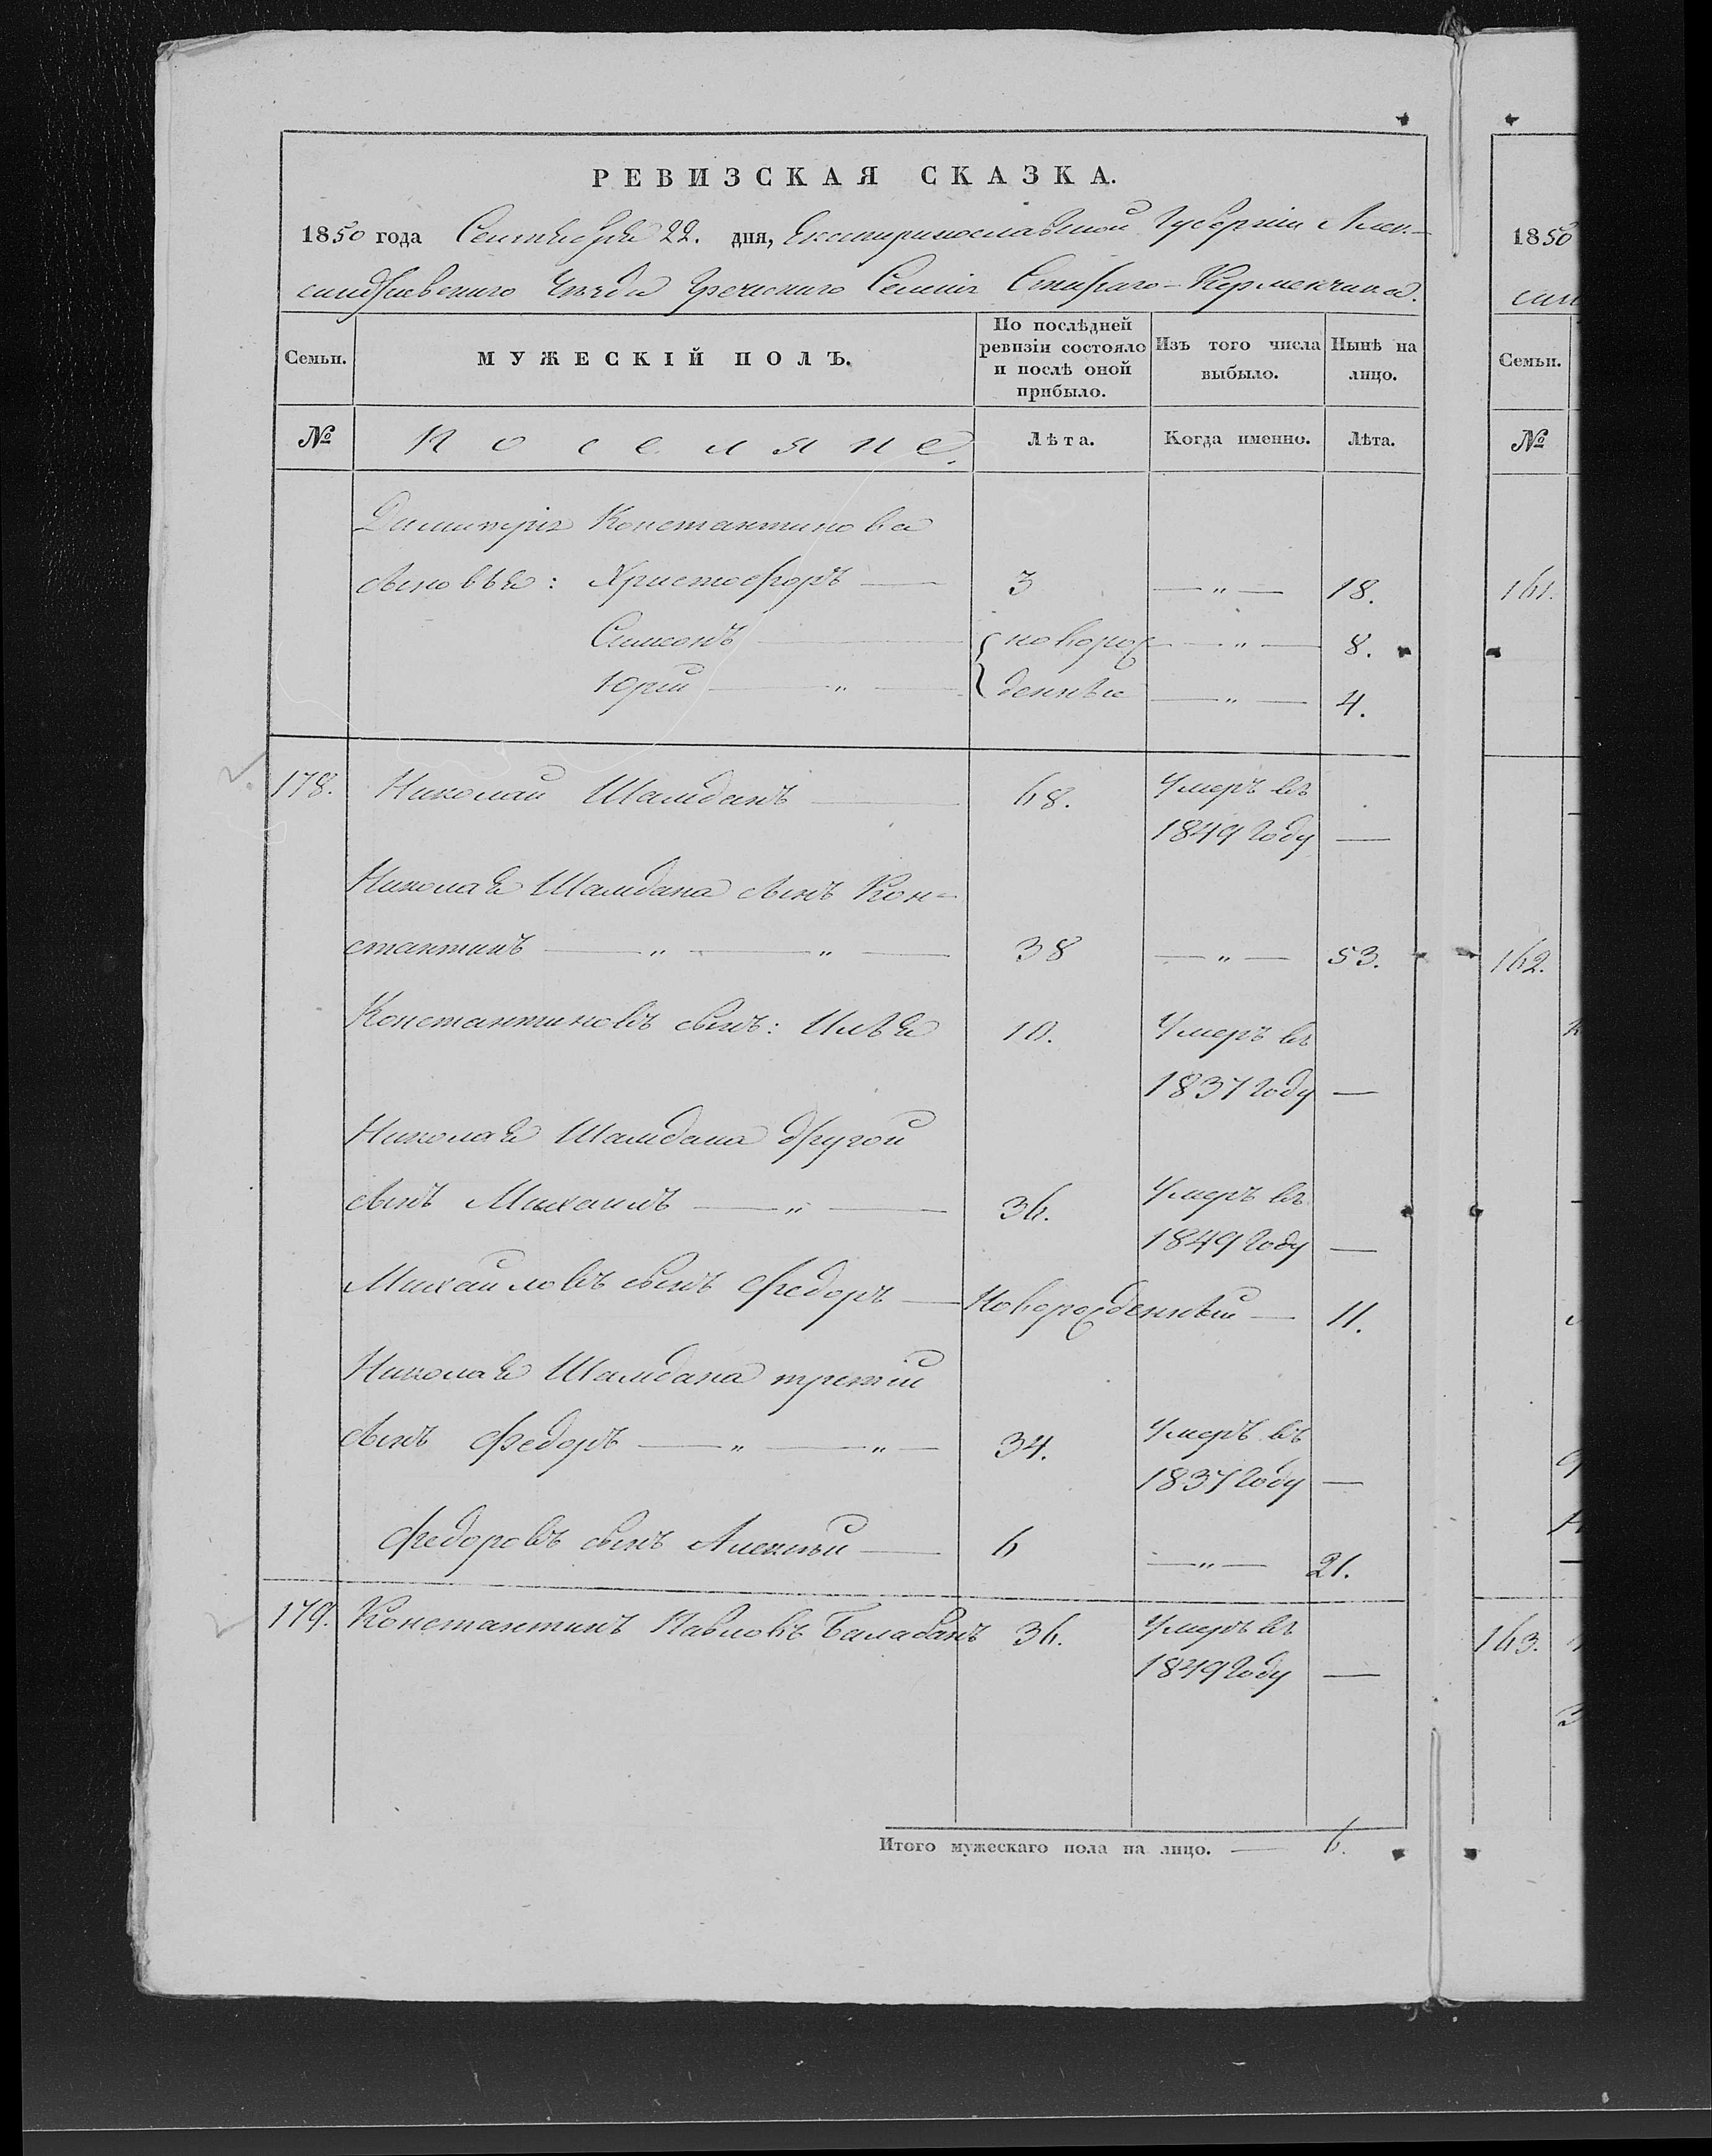 РЕВИЗСКАЯ СКАЗКА.
1850 года Сентября 22. дня, Екатеринославской Губерніи Алек-
сандровскаго Уѣзда Греческаго Селенія Стараго-Керменчика.
Семьи. МУЖЕСКІЙ ПОЛЪ. По послѣдней ревизіи состояло и послѣ оной прибыло. Изъ того числа выбыло. Нынѣ на лицо.
№ Поселяне. Лѣта. Когда именно. Лѣта.
Димитрія Константинова
сыновья: Христофоръ — 3 — „ — 18.
Симеонъ — новорож — „ — 8.
Юрій — „ — денные — „ — 4.
178. Николай Шамданъ — 68. Умеръ въ
1849 году —
Николая Шамдана сынъ Кон-
стантинъ — „ — „ — 38 — „ — 53.
Константиновъ сынъ: Илья 10. Умеръ въ
1837 году —
Николая Шамдана другой
сынъ Михаилъ — „ — 36. Умеръ въ
1849 году —
Михайловъ сынъ Федоръ — Новорожденный — 11.
Николая Шамдана третій
сынъ Федоръ — „ — „ — 34. Умеръ въ
1837 году —
Федоровъ сынъ Алексѣй — 6 — „ — 21.
179. Константинъ Павловъ Балабанъ 36. Умеръ въ
1849 году —
Итого мужескаго пола на лицо. — 6.
1850
сан
Семьи.
№
161.
162.
163.